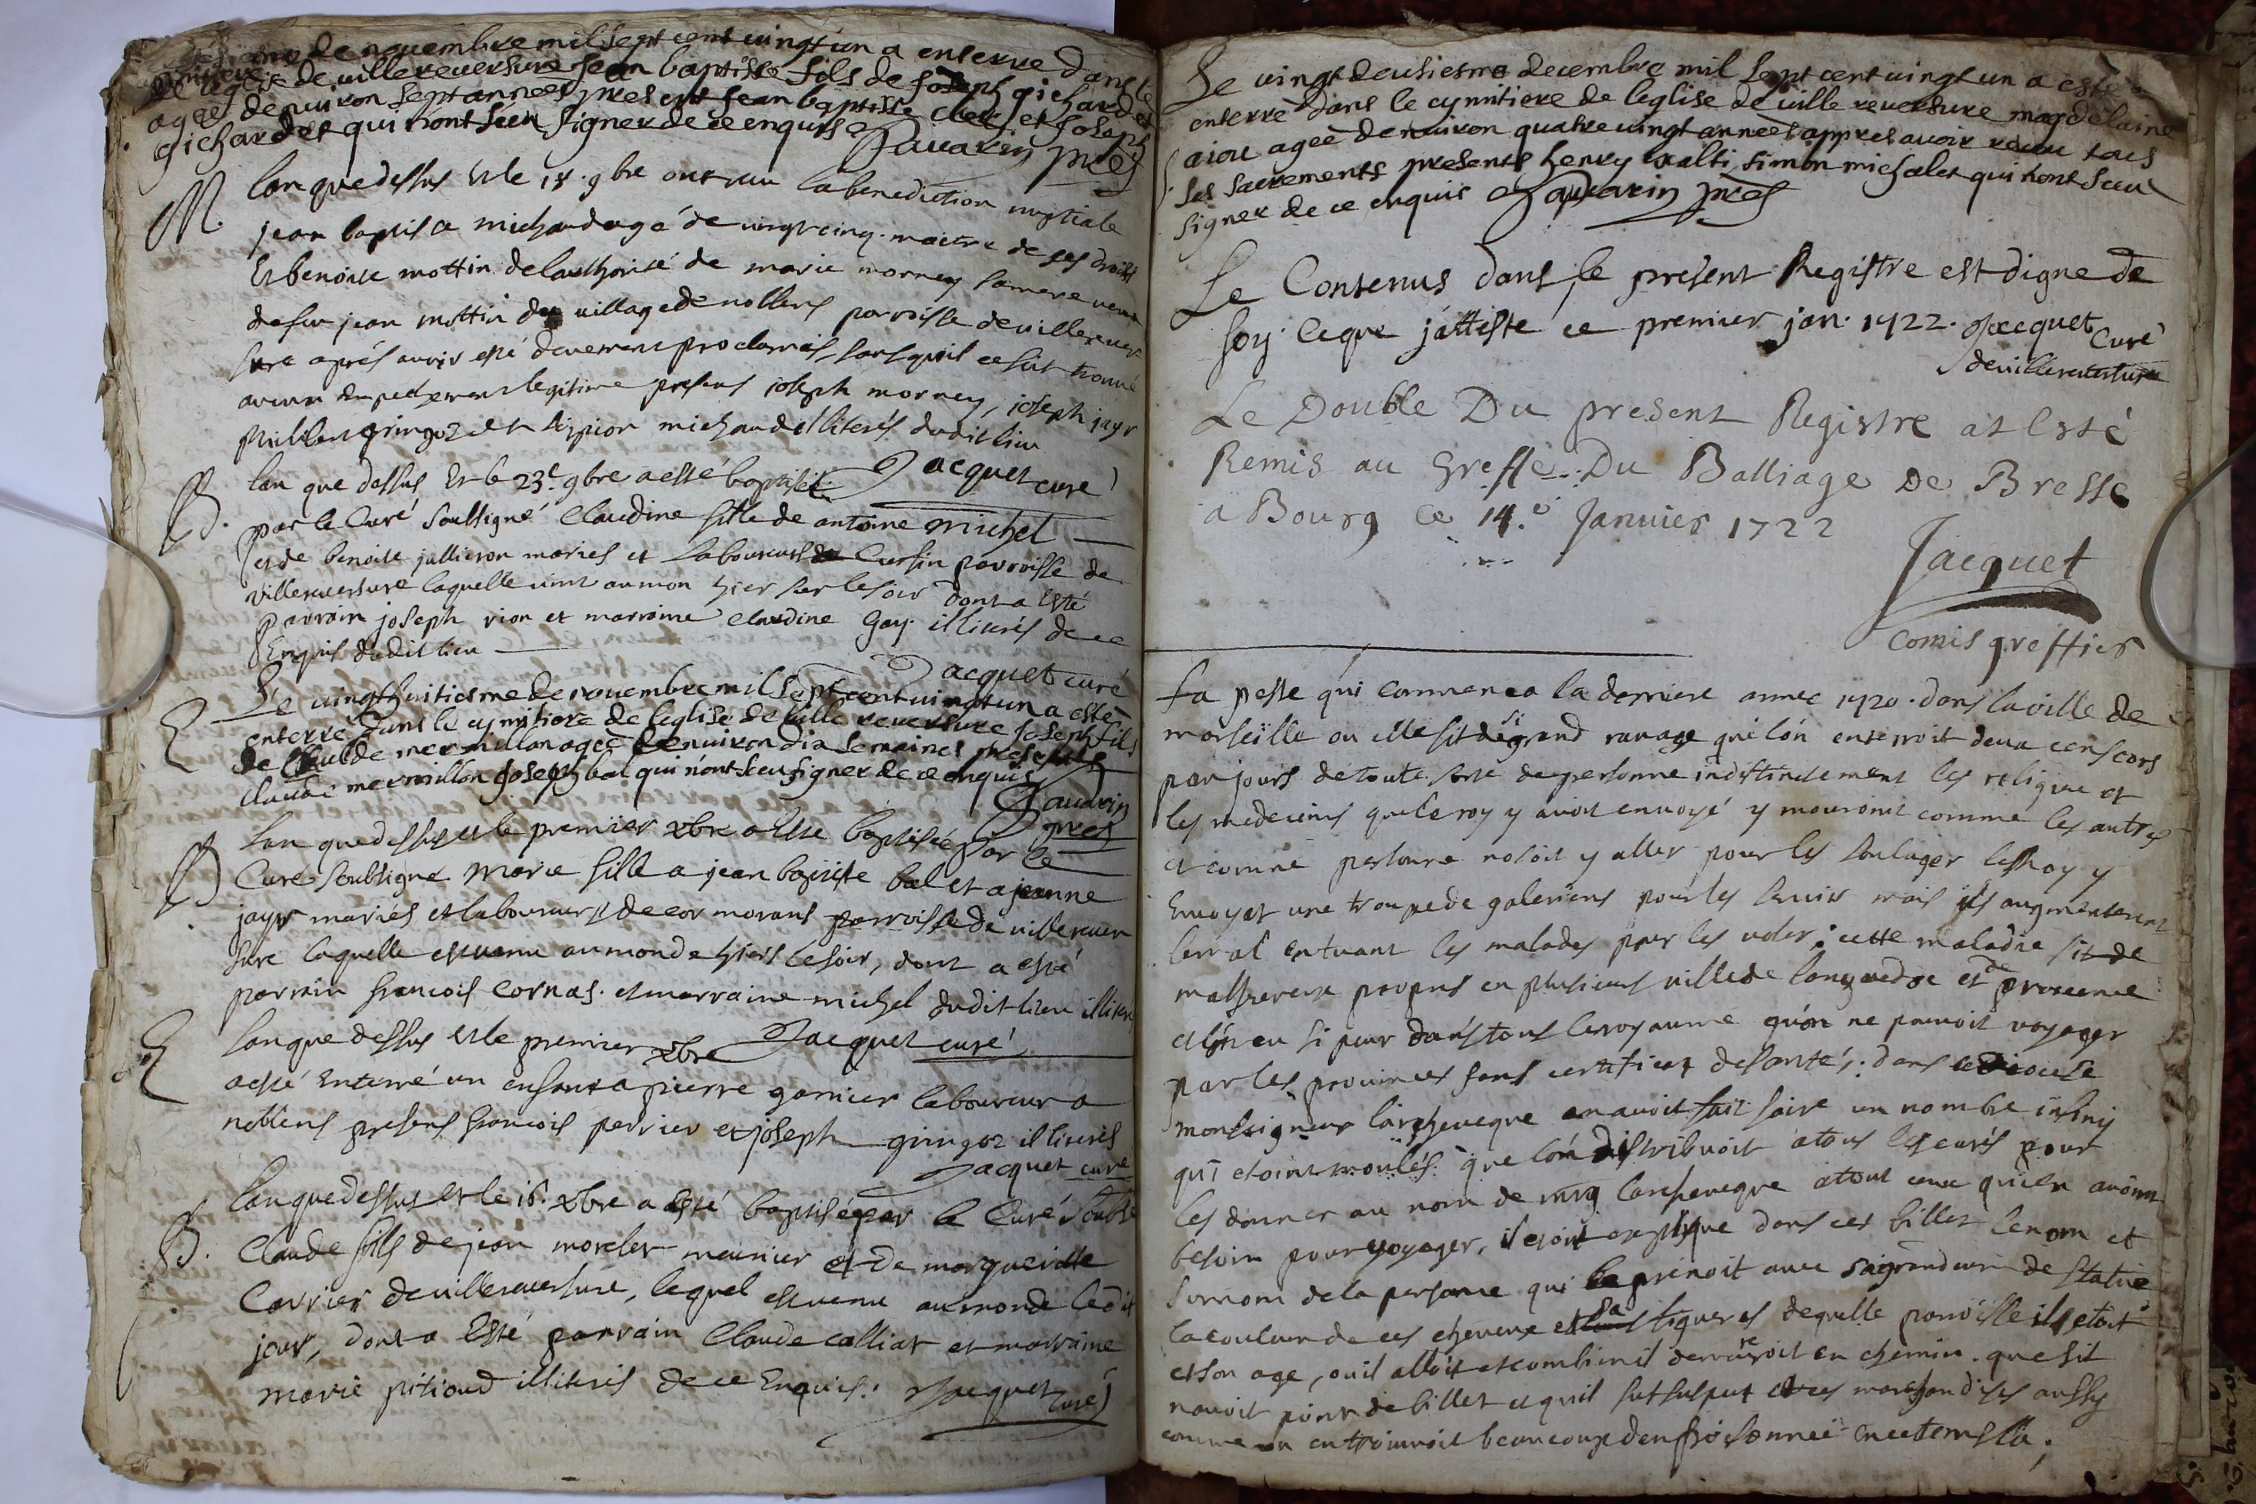 de novembre mil sept cent vingt un a enterre dans le
de leglise de villereversure Jean baptiste fils de Joseph gichardet
agee denuiron sept années presents Jean baptiste et Joseph
gichardet qui nont sceu signer de ce enquis Pauarin pres
M. lan que dessus et le 18. 9bre ont reçu la benediction nuptiale
jean baptista michaud agé de vingt cinq. maitre de ses droits
Et benoite mottin de lauthorisé de marie morney sa mere veuve
defeu jean mottin du village de nollens parroisse de villereuer
sure aprés avoir esté deuement proclamés, sans quil ce soit trouué
aucun empechement legitime presens joseph morney, joseph jayr
philibert gringoz et michaud illiterés dudit lieu
Jacquet curé
B. lan que dessus Et le 23e. 9bre a esté baptisée
par le Curé soussigné Claudine fille de antoine michel
et de benoite jullieron mariés et laboureurs de Cursin parroisse de
villereuersure laquelle vint au mon hier sur le soir dont a Esté
parrain joseph rion et marraine claudine Gay illiterés de ce
Enquis dudit lieu
Jacquet curé
E Le vingt huitiesme de nouembre mil sept cent vingt un a esté
enterré dans le cymitiere de leglise de ville reuersure Joseph fils
de Claude mermillon agée denuiron dix semaines presents
claude mermillon Joseph bal qui n'ont sceu signer de ce enquis
Pauarin pres
B lan que dessus et le premier xbre a Este baptisée par le
Curé soubsigné marie fille a jean baptiste bal et a jeanne
jayr mariés et laboureurs de cormorans parroisse de villereuer
sure laquelle est venu au monde hiers le soir, dont a esté
parrain francois Cornas. et marraine michel dudit lieu illiteré
Jacquet curé
E lan que dessus et le premier xbre
a esté Enterré un enfant a pierre garnier laboureur a
nollens presens francois perrier et joseph gringoz illiterés
Jacquet curé
B. lan que dessus et le 16. xbre a esté baptisé par le Curé soubsé
Claude fils de jean morelet meunier et de margueritte
Carrier de villereuersure, lequel est venu au monde ledit
jour, dont a Esté parrain Claude Calliat et marraine
marie pitioud illiterés de ce Enquis. Jacquet curé
Le vingt deusiesme decembre mil sept cent vingt un a esté
enterré dans le cymitiere de leglise de ville reuersure magdelaine
aiou agée denuiron quatre vingt années appres avoir receu tous
ses sacrements presents henry valti simon michalet qui nont sceu
signer de ce enquis Pauarin pres
Le Contenus dans le present Registre est digne de
foy ceque j'atteste ce premier jan. 1722. Jacquet Curé
de villereversure
Le Double Du present Registre at Esté
Remis au Greffe Du Balliage De Bresse
a Bourg ce 14.e Januier 1722
Jacquet
Comis greffier
La peste qui commenca la derniere année 1720. dans la ville de
marseille ou elle fit de si grand ravage que lón enterroit deux cens cors
par jours de toute sorte de personne indistinctement les religieux et
les medecins que le roy y avoit envoyé y mouroient comme les autres
et comme personne nosoit y aller pour les soulager le Roy y
Envoyat une troupe de galeriens pour les seruir mais ils augmenterent
le mal en tuant les malades pour les voler: cette maladie fit de
malheureux progres en plusieurs ville de languedoc et de provence
et lón eu si peur dans tous le royaume qu'ón ne pouvoit voyager
par les provinces sans certificat de santé; dans ce diocese
monseigneur larcheveque en avoit fait faire un nombre infiny
qui etoient moulés que lón distribuoit a tous les curés pour
les donner au nom de mrg larcheveque a tout ceux qui en avoient
besoin pour voyager, il etoit explique dans ces billet le nom et
surnom de la personne qui le prenoit avec sa grandeur de stature
la couleur de ces cheveux et sa figures de quelle parroisse il etoit
et son age, ou il alloit et combien il demeureroit en chemin. que sil
navoit point de billet et quil fut suspect et ces marchandises aussy
comme on en trouvoit beaucoup denpoisonnée en ce tems la,